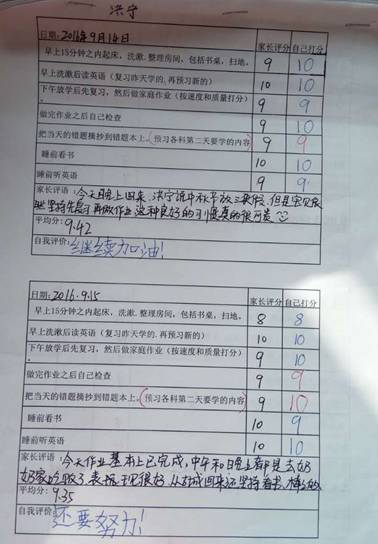 洪宁
日期：2016年9月14日 家长评分 自己打分
早上15分钟之内起床，洗漱.整理房间，包括书桌，扫地， 9 10
早上洗漱后读英语（复习昨天学的.再预习新的） 10 10
下午放学后先复习，然后做家庭作业（按速度和质量打分） 9 9
做完作业之后自己检查 9 10
把当天的错题摘抄到错题本上，（预习各科第二天要学的内容） 9 9
睡前看书 10 10
睡前听英语 9 9
家长评语：今天晚上回来，洪宁说中秋节放三天假，但是
坚持先复习再做作业这种良好的习惯真的很可贵
平均分：9.42
自我评价：继续加油！
日期：2016.9.15 家长评分 自己打分
早上15分钟之内起床，洗漱.整理房间，包括书桌，扫地， 8 8
早上洗漱后读英语（复习昨天学的.再预习新的） 10 10
下午放学后先复习，然后做家庭作业（按速度和质量打分） 9 10
做完作业之后自己检查 9 9
把当天的错题摘抄到错题本上，（预习各科第二天要学的内容） 9 10
睡前看书 10 9
睡前听英语 10 10
家长评语：今天作业基本上已完成，中午和晚上都是去奶
奶家吃饭了，表现很好，从 回来还坚持看书，棒棒的
平均分：9.35
自我评价：还要努力！